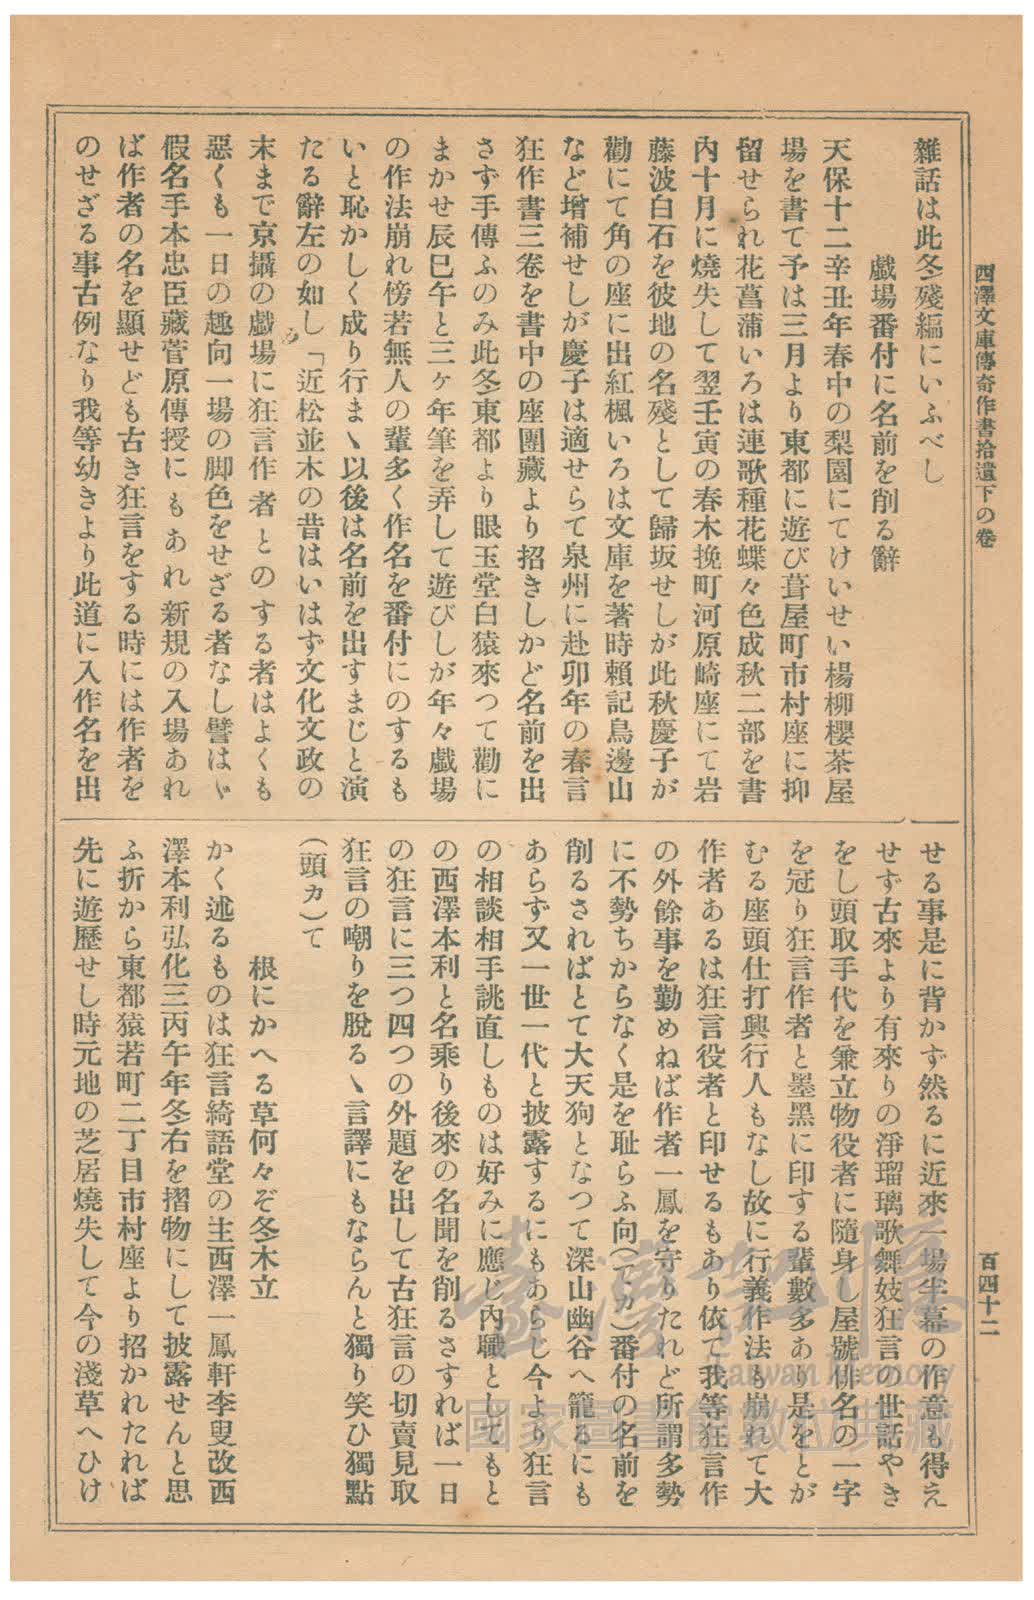 西澤文庫傳奇作書拾遺下の卷
百四十二
雜話は此冬殘編にいふべし
戲場番付に名前を削る辭
天保十二辛丑年春中の梨園にてけいせい楊柳櫻茶屋
場を書て予は三月より東都に遊び葺屋町市村座に抑
留せられ花菖蒲いろは連歌種花蝶々色成秋二部を書
內十月に燒失して翌壬寅の春木挽町河原崎座にて岩
藤波白石を彼地の名殘として歸坂せしが此秋慶子が
勸にて角の座に出紅楓いろは文庫を著時賴記鳥邊山
など增補せしが慶子は適せらて泉州に赴卯年の春言
狂作書三卷を書中の座團藏より招きしかど名前を出
さず手傳ふのみ此冬東都より眼玉堂白猿來つて勸に
まかせ辰巳午と三ケ年筆を弄して遊びしが年々戲場
の作法崩れ傍若無人の輩多く作名を番付にのするも
いと恥かしく成り行まゝ以後は名前を出すまじと演
たる辭左の如し「近松並木の昔はいはず文化文政の
末まで京攝の戲場に狂言作者とのする者はよくも
惡くも一日の趣向一場の脚色をせざる者なし譬はゞ
假名手本忠臣藏菅原傳授にもあれ新規の入場あれ
ば作者の名を顯せども古き狂言をする時には作者を
のせざる事古例なり我等幼きより此道に入作名を出
せる事是に背かず然るに近來一場半幕の作意も得え
せず古來より有來りの淨瑠璃歌舞妓狂言の世話やき
をし頭取手代を兼立物役者に隨身し屋號俳名の一字
を冠り狂言作者と墨黑に印する輩數多あり是をとが
むる座頭仕打興行人もなし故に行義作法も崩れて大
作者あるは狂言役者と印せるもあり依て我等狂言作
の外餘事を勤めねば作者一鳳を守りたれど所謂多勢
に不勢ちからなく是を耻らふ向(てカ)番付の名前を
削るさればとて大天狗となつて深山幽谷へ籠るにも
あらず又一世一代と披露するにもあらじ今より狂言
の相談相手誂直しものは好みに應じ內職としてもと
の西澤本利と名乘り後來の名聞を削るさすれば一日
の狂言に三つ四つの外題を出して古狂言の切賣見取
狂言の嘲りを脫るゝ言譯にもならんと獨り笑ひ獨點
(頭カ)て
根にかへる草何々ぞ冬木立
かく述るものは狂言綺語堂の主西澤一鳳軒李叟改西
澤本利弘化三丙午年冬右を摺物にして披露せんと思
ふ折から東都猿若町二丁目市村座より招かれたれば
先に遊歷せし時元地の芝居燒失して今の淺草へひけ
臺灣記憶
Taiwan Memory
國家圖書館數位典藏